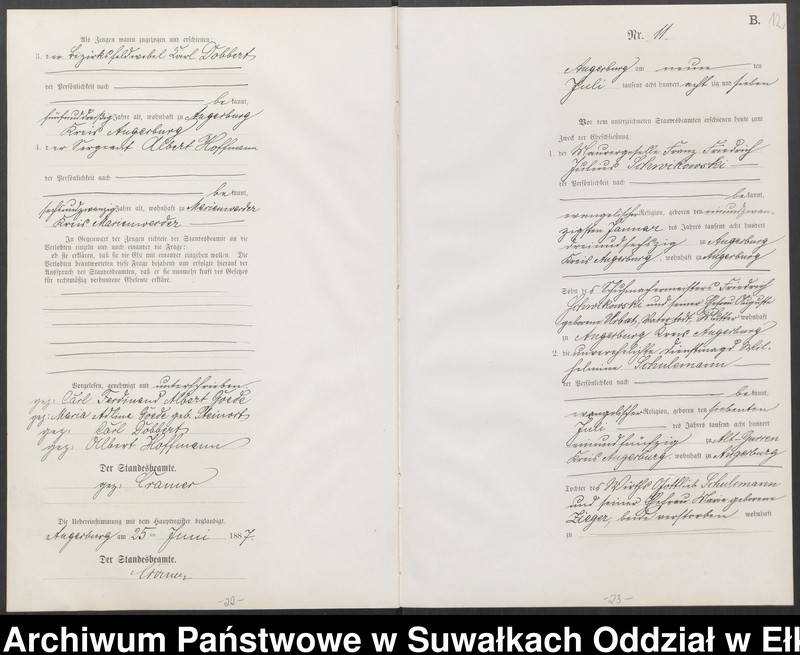 Als Zeugen waren zugezogen und erschienen:
3. der Bezirksfeldwebel Carl Dobbert
der Persönlichkeit nach
bekannt,
fünfunddreißig Jahre alt, wohnhaft zu Angerburg
Kreis Angerburg
4. der Sergeant Albert Hoffmann
der Persönlichkeit nach
bekannt,
sechsundzwanzig Jahre alt, wohnhaft zu Marienwerder
Kreis Marienwerder
In Gegenwart der Zeugen richtete der Standesbeamte an die
Verlobten einzeln und nach einander die Frage:
ob sie erklären, daß sie die Ehe mit einander eingehen wollen. Die
Verlobten beantworteten diese Frage bejahend und erfolgte hierauf der
Ausspruch des Standesbeamten, daß er sie nunmehr kraft des Gesetzes
für rechtmäßig verbundene Eheleute erkläre.
Vorgelesen, genehmigt und unterschrieben
gez: Carl Ferdinand Albert Goede
gez: Maria Adline Goede geb. Steinort
gez: Carl Dobbert
gez: Albert Hoffmann
Der Standesbeamte.
gez: Cramer
Die Uebereinstimmung mit dem Hauptregister beglaubigt.
Angerburg am 25 ten Juni 1887.
Der Standesbeamte.
Cramer
-22-
B. 12
Nr. 11.
Angerburg am neun ten
Juli tausend acht hundert acht zig und sieben
Vor dem unterzeichneten Standesbeamten erschienen heute zum
Zweck der Eheschließung:
1. der Maurergeselle Franz Friedrich
Julius Schwikowski
der Persönlichkeit nach
bekannt,
evangelischer Religion, geboren den einundzwan-
zigsten Januar des Jahres tausend acht hundert
dreiundsechszig zu Angerburg
Kreis Angerburg, wohnhaft zu Angerburg
Sohn des Schuhmachermeisters Friedrich
Schwikowski und seiner Ehefrau Auguste
geborene Urbat, Vater todt, Mutter wohnhaft
zu Angerburg Kreis Angerburg
2. die unverehelichte Dienstmagd Wil-
helmine Schulemann
der Persönlichkeit nach
bekannt,
evangelischer Religion, geboren den siebenten
Juli des Jahres tausend acht hundert
einundfünfzig zu Alt-Gurren
Kreis Angerburg, wohnhaft zu Angerburg
Tochter des Wirths Gottlieb Schulemann
und seiner Ehefrau geborene
Zieger, beide verstorben wohnhaft
zu
-23-
Archiwum Państwowe w Suwałkach Oddział w Ełk